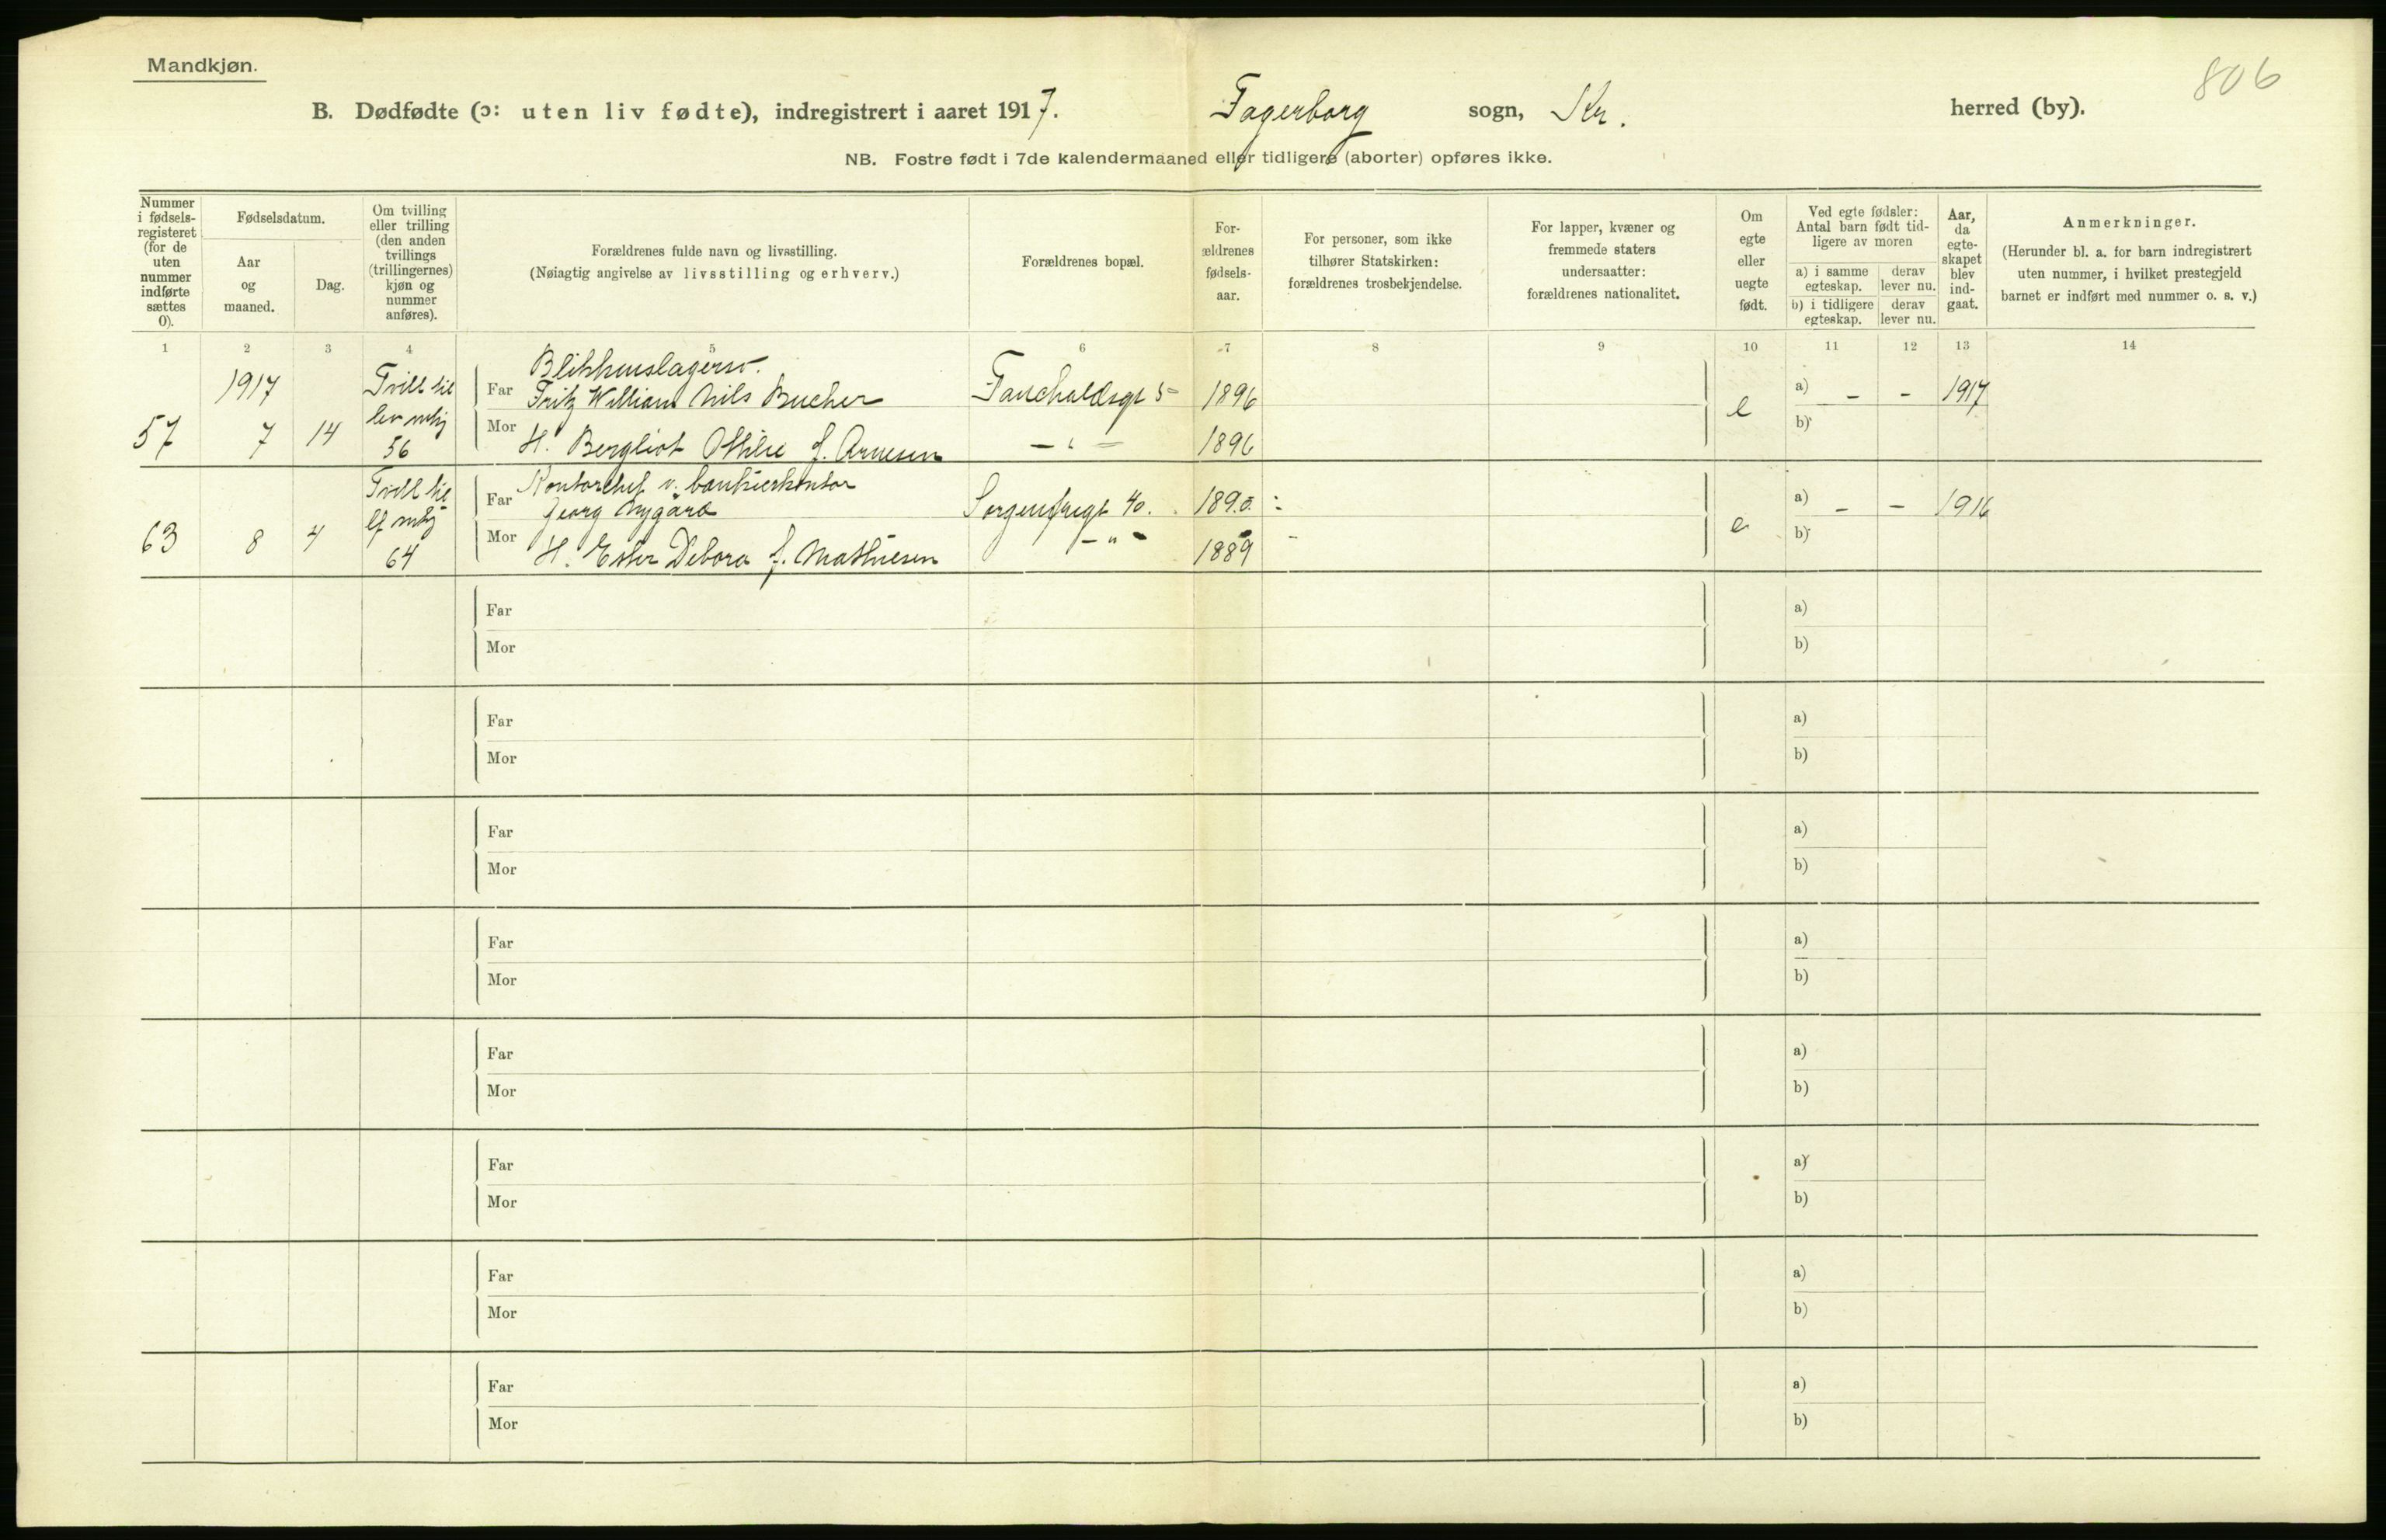 Mandkjøn.
806
B. Dødfødte (ɔ: uten liv fødte), indregistrert i aaret 1917. Fagerborg sogn, Kr. herred (by).
NB. Fostre født i 7de kalendermaaned eller tidligere (aborter) opføres ikke.
Nummer i fødsels-registeret (for de uten nummer indførte sættes 0).
Fødselsdatum.
Aar og maaned.
Dag.
Om tvilling eller trilling (den anden tvillings (trillingernes) kjøn og nummer anføres).
Forældrenes fulde navn og livsstilling.
(Nøiagtig angivelse av livsstilling og erhverv.)
Forældrenes bopæl.
For-ældrenes fødsels-aar.
For personer, som ikke tilhører Statskirken: forældrenes trosbekjendelse.
For lapper, kvæner og fremmede staters undersaatter: forældrenes nationalitet.
Om egte eller uegte født.
Ved egte fødsler: Antal barn født tid-ligere av moren
a) i samme egteskap.
derav lever nu.
b) i tidligere egteskap.
derav lever nu.
Aar, da egte-skapet blev ind-gaat.
Anmerkninger.
(Herunder bl. a. for barn indregistrert uten nummer, i hvilket prestegjeld barnet er indført med nummer o. s. v.)
1 2 3 4 5 6 7 8 9 10 11 12 13 14
1917 Tvill til Blikkenslagersv.
Far Fritz William Nils Bucher 1896 a) - - 1917
57 7 14 56 Mor H. Bergliot f. Arnesen - " - 1896 e b)
Tvill til Kontorchef v. bankierkontor
Far Georg Nygård Sorgenfrigt 40. 1890 a) - - 1916
63 8 4 64 Mor H. Ester Debora f. Mathiesen - " - 1889 e b)
Far a)
Mor b)
Far a)
Mor b)
Far a)
Mor b)
Far a)
Mor b)
Far a)
Mor b)
Far a)
Mor b)
Far a)
Mor b)
Far a)
Mor b)